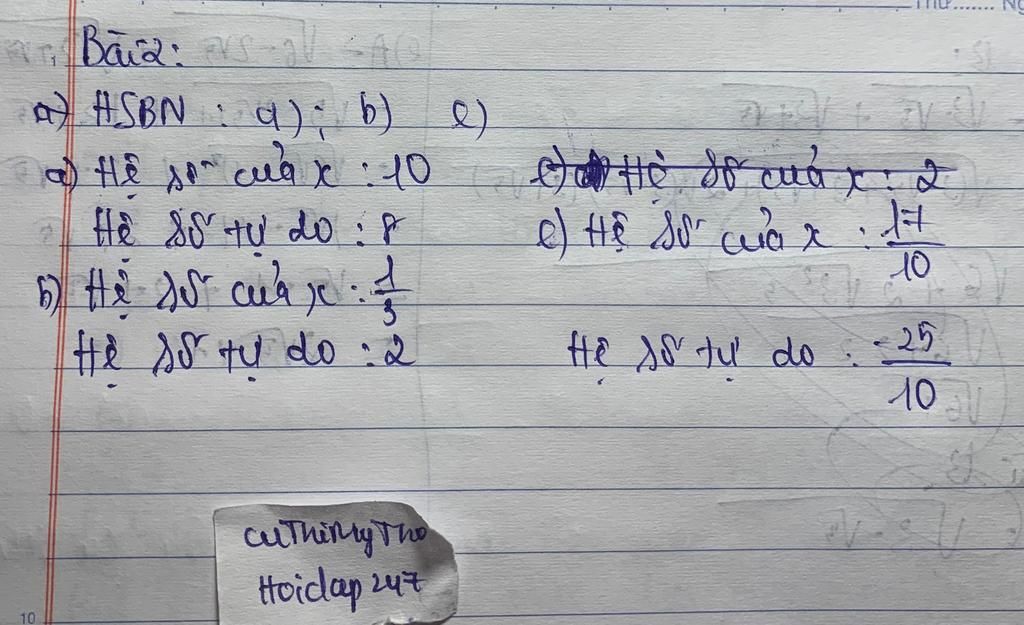 Bài 2:
a) HSBN : a) ; b) e)
a) Hệ số của x : 10
Hệ số tự do : 8
b) Hệ số của x : 1/3
Hệ số tự do : 2
e) Hệ số của x : 2
e) Hệ số của x : 17/10
Hệ số tự do : -25/10
CuThiMyTho
Hoidap247
10